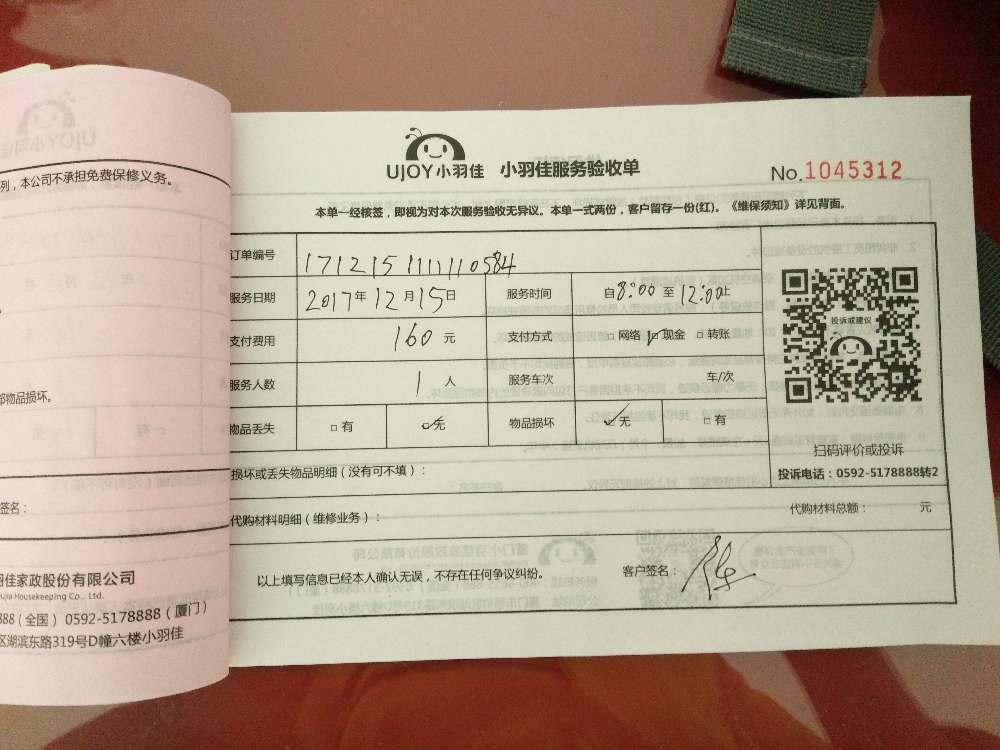 UJOY小羽佳 小羽佳服务验收单
No.1045312
本单一经核签，即视为对本次服务验收无异议。本单一式两份，客户留存一份(红)。《维保须知》详见背面。
订单编号 171215111110584
服务日期 2017年12月15日 服务时间 自8:00至12:00止
支付费用 160元 支付方式 □网络 ☑现金 □转账
服务人数 1人 服务车次 车/次
物品丢失 □有 ☑无 物品损坏 ☑无 □有
损坏或丢失物品明细（没有可不填）：
代购材料明细（维修业务）： 代购材料总额： 元
以上填写信息已经本人确认无误，不存在任何争议纠纷。 客户签名：
投诉或建议
扫码评价或投诉
投诉电话：0592-5178888转2
列，本公司不承担免费保修义务。
部物品损坏。
签名：
羽佳家政股份有限公司
ujia Housekeeping Co., Ltd.
888（全国） 0592-5178888（厦门）
区湖滨东路319号D幢六楼小羽佳